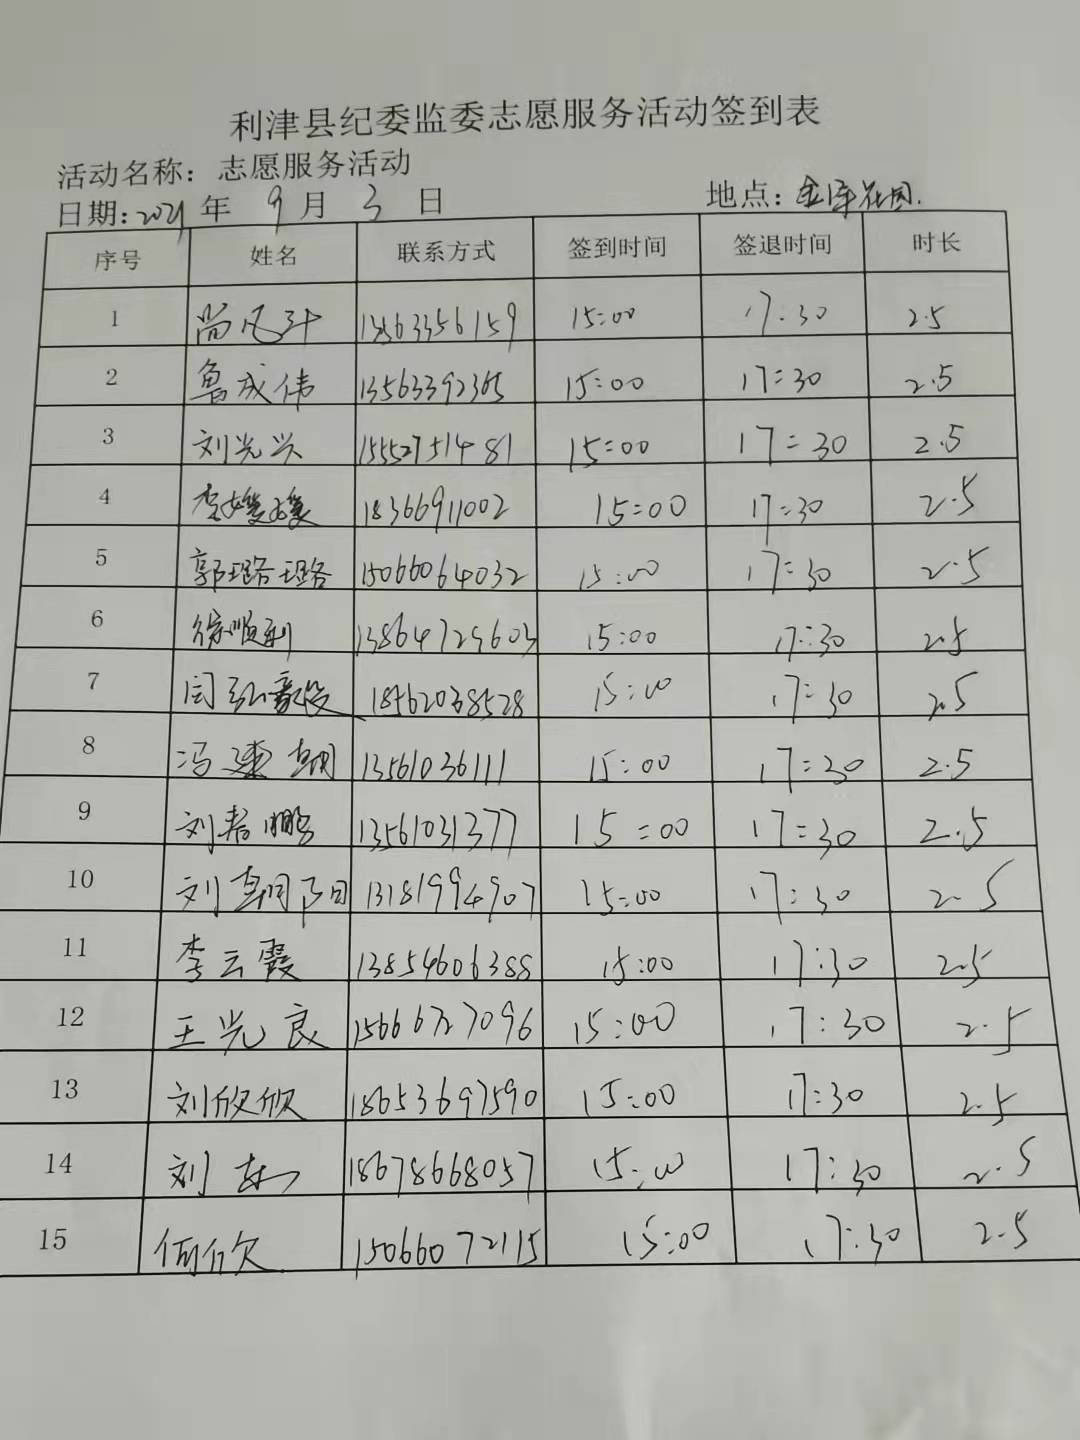 利津县纪委监委志愿服务活动签到表
活动名称：志愿服务活动
日期：2021年 9月 3日 地点：金泽花园.
序号 姓名 联系方式 签到时间 签退时间 时长
1 尚风斗 13863356159 15:00 17:30 2.5
2 鲁成伟 13563392365 15:00 17:30 2.5
3 刘光兴 15552751481 15:00 17:30 2.5
4 李媛媛 18366911002 15:00 17:30 2.5
5 郭璐璐 15066064032 15:00 17:30 2.5
6 徐顺利 13864729603 15:00 17:30 2.5
7 闫弘毅 18562038528 15:00 17:30 2.5
8 冯建朝 13561036111 15:00 17:30 2.5
9 刘君鹏 13561031377 15:00 17:30 2.5
10 刘朝阳 13181994907 15:00 17:30 2.5
11 李云霞 13854606388 15:00 17:30 2.5
12 王光良 15666727096 15:00 17:30 2.5
13 刘欣欣 18653697590 15:00 17:30 2.5
14 刘 18678668057 15:00 17:30 2.5
15 何欣 15066072115 15:00 17:30 2.5